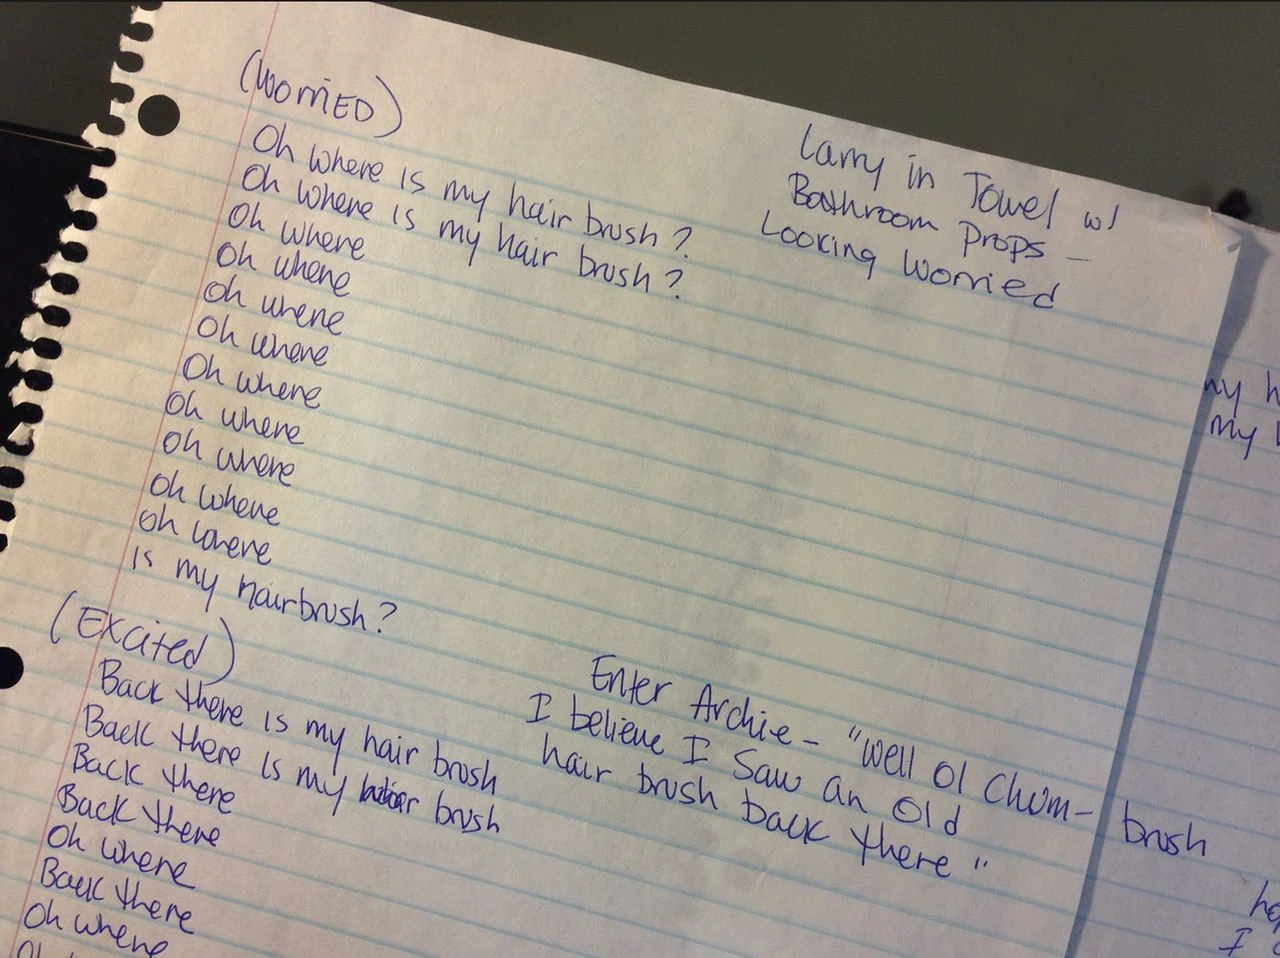 (WorriED)
Oh where is my hair brush?
Oh where is my hair brush?
Oh where
Oh where
Oh where
Oh where
Oh where
Oh where
Oh where
Oh where
Oh where
is my hairbrush?
(Excited)
Back there is my hair brush
Back there is my hair brush
Back there
Back there
Oh where
Back there
Oh where
Larry in Towel w/
Bathroom props -
Looking Worried
Enter Archie - "Well Ol Chum-
I believe I saw an old
hair brush back there"
my h
my
brush
I